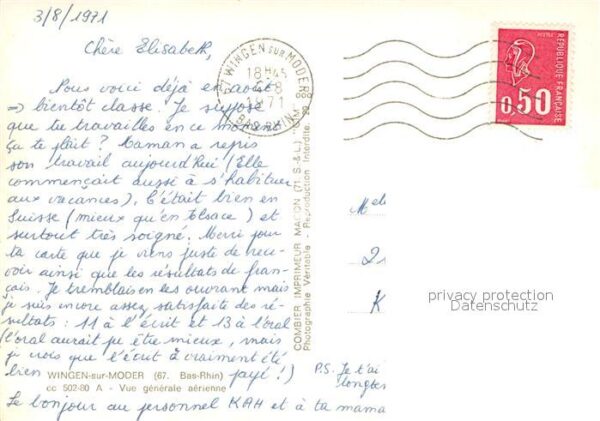 3/8/1971
Chère Elisabeth,
Nous voici déjà en août
⇒ bientôt classe. Je suppose
que tu travailles en ce moment
ça te plaît ? Maman a repris
son travail aujourd'hui (Elle
commençait aussi à s'habituer
aux vacances). C'était bien en
Suisse (mieux qu'en Alsace) et
surtout très soigné. Merci pour
ta carte que je viens juste de rece-
voir ainsi que les résultats de fran-
çais. Je tremblais en les ouvrant mais
je suis encore assez satisfaite des ré-
sultats : 11 à l'écrit et 13 à l'oral
(l'oral aurait pu être mieux, mais
je crois que l'écrit a vraiment été
bien payé !)
WINGEN-sur-MODER (67. Bas-Rhin)
cc 502-80 A - Vue générale aérienne
Le bonjour au personnel KAH et à ta mama
P.S. Je t'ai
longte
COMBIER IMPRIMEUR MACON (71. S.-&-L.) "CIM"
Photographie Véritable - Reproduction Interdite
WINGEN SUR MODER
18H45
4-8
1971
BAS-RHIN
REPUBLIQUE FRANÇAISE
POSTES
0,50
Me
K
privacy protection
Datenschutz